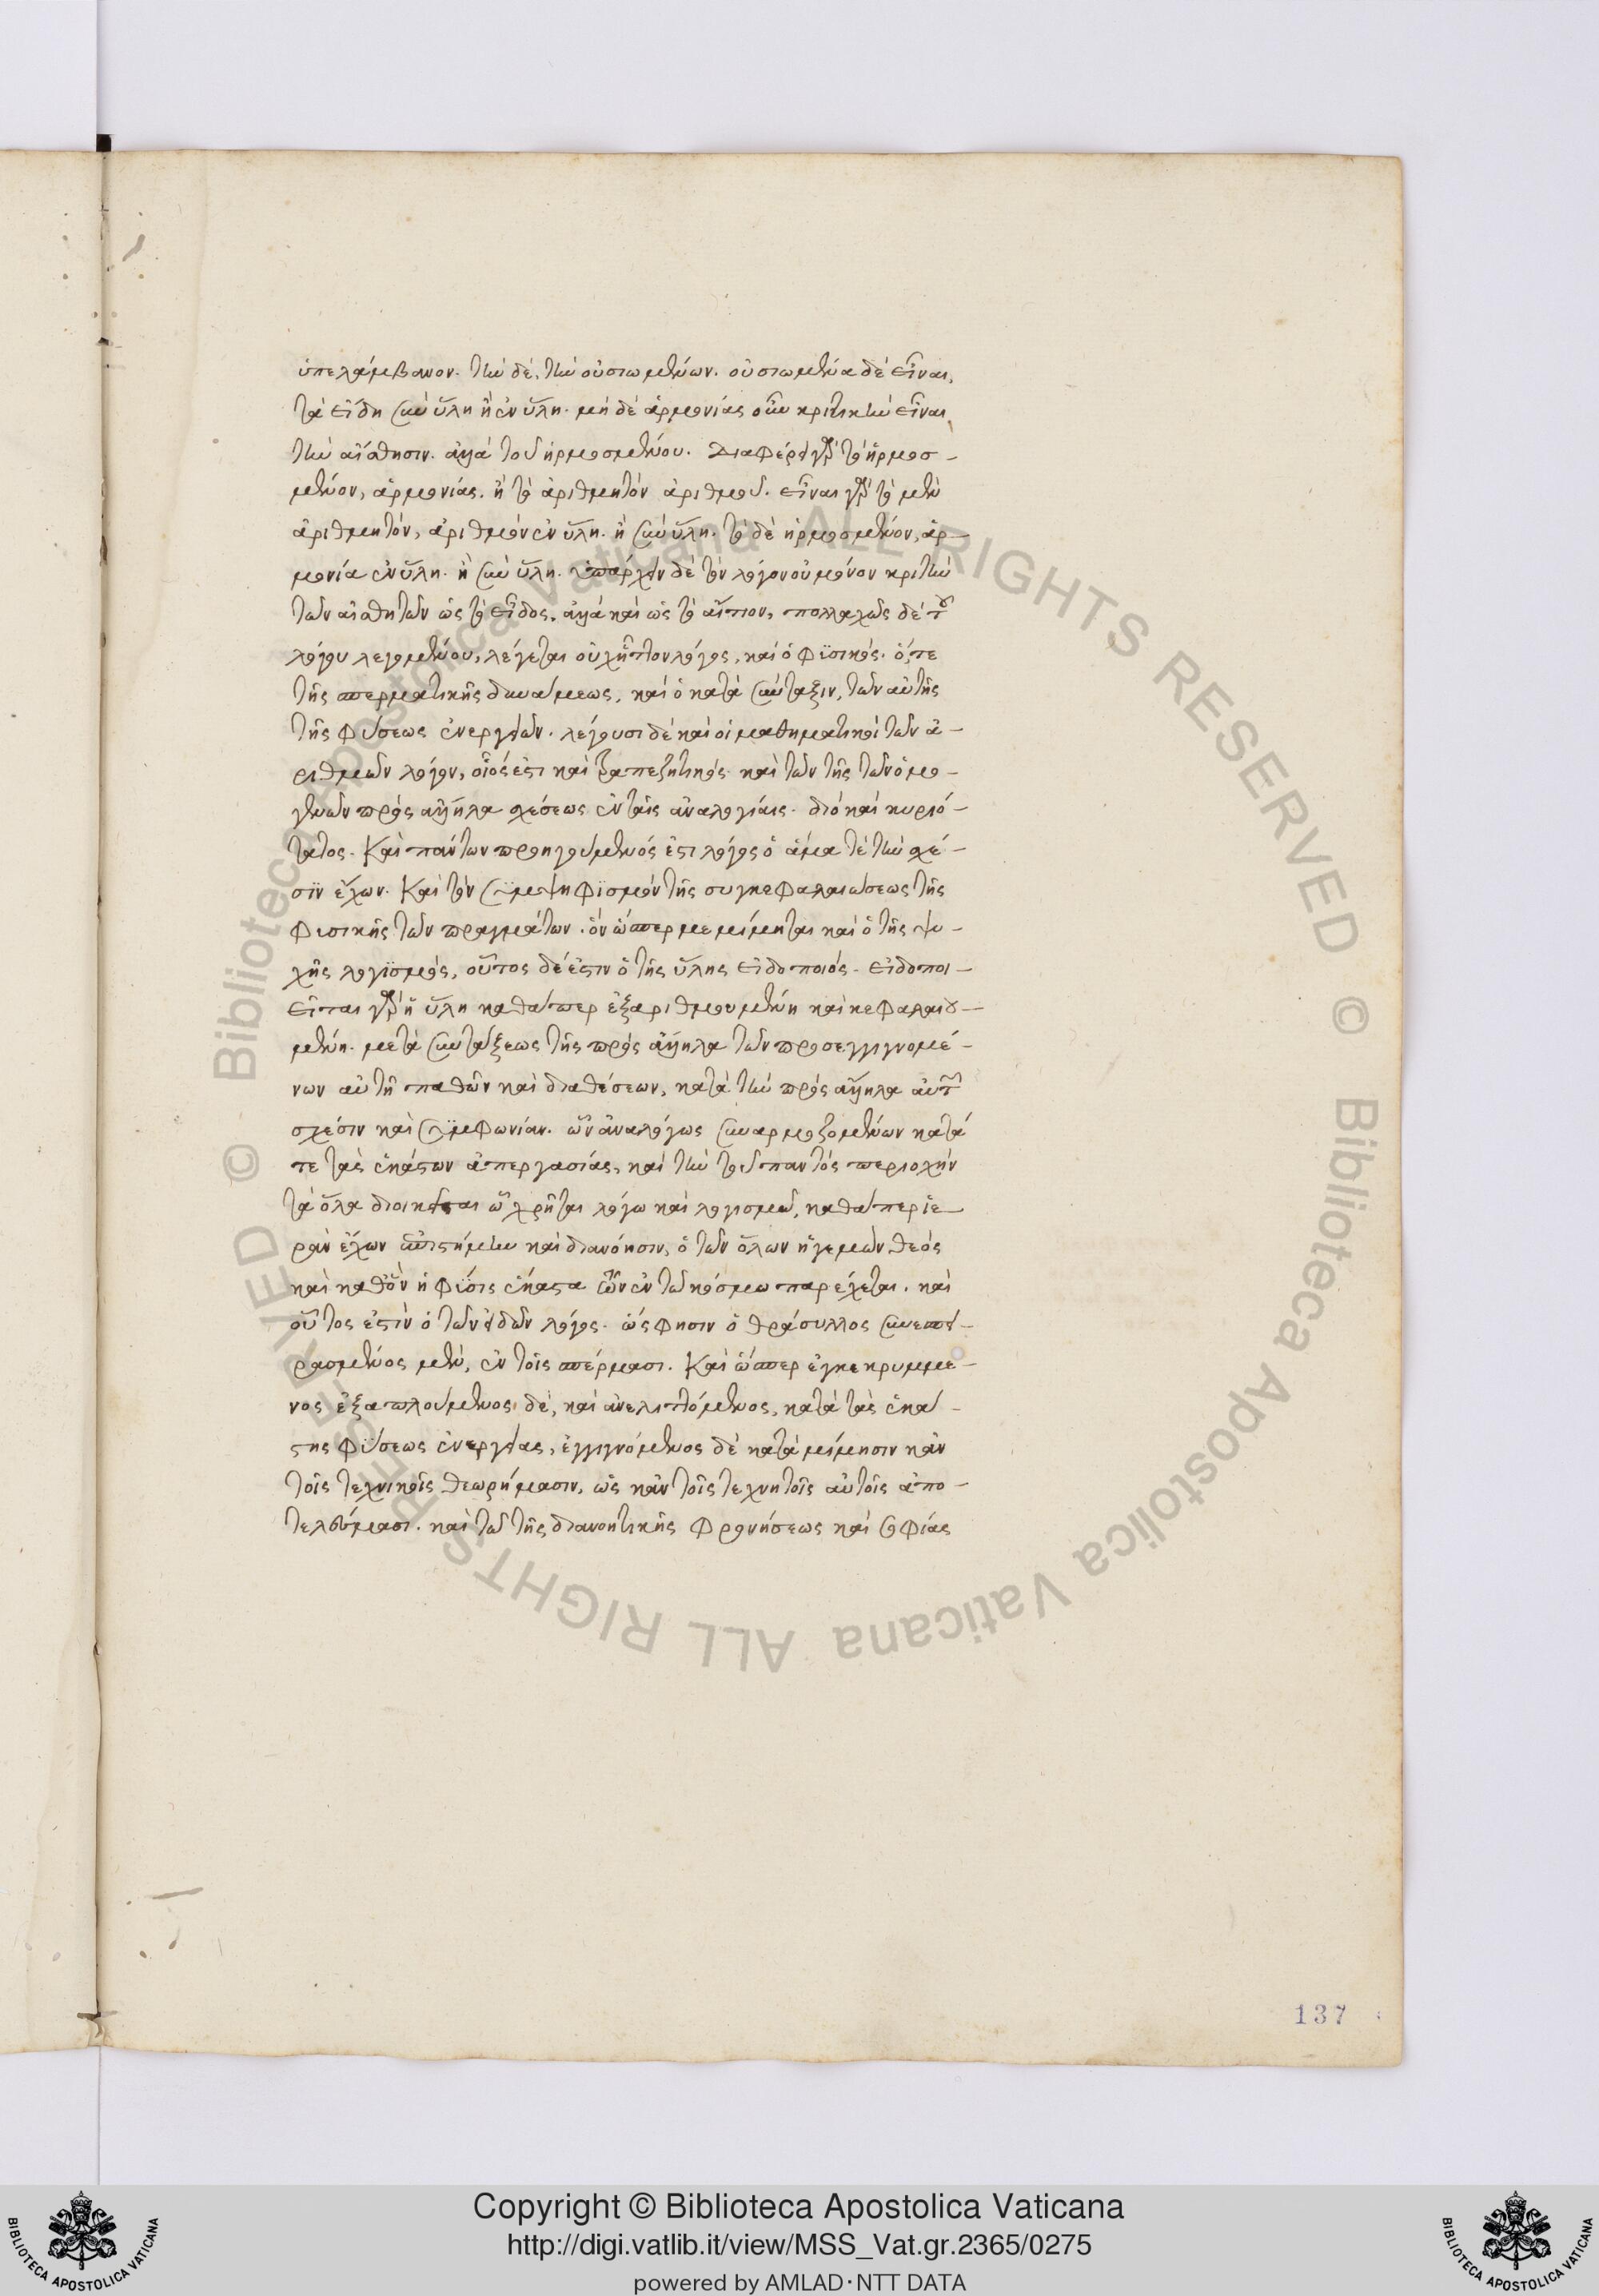 ὑπελάμβανον. τὴν δὲ, τὴν οὐσιωμένων. οὐσιωμένα δὲ εἶναι,
τὰ εἴδη σὺν ὕλη ἢ ἐν ὕλη. μὴ δὲ ἁρμονίας οὖν κριτικὴν εἶναι
τὴν αἴσθησιν. ἀλλὰ τοῦ ἡρμοσμένου. διαφέρει γὰρ τὸ ἡρμοσ-
μένον, ἁρμονίας. ἢ τὸ ἀριθμητὸν ἀριθμοῦ. εἶναι γὰρ τὸ μὲν
ἀριθμητὸν, ἀριθμὸν ἐν ὕλη. ἢ σὺν ὕλη. τὸ δὲ ἡρμοσμένον, ἁρ-
μονία ἐν ὕλη. ἢ σὺν ὕλη. ὑπάρχειν δὲ τὸν λόγον οὐ μόνον κριτὴν
τῶν αἰσθητῶν ὡς τὸ εἶδος, ἀλλὰ καὶ ὡς τὸ αἴτιον, πολλαχῶς δὲ τοῦ
λόγου λεγομένου, λέγεται οὐχ ἧττον λόγος, καὶ ὁ φϋσικός. ὅ,τε
τῆς σπερματικῆς δυνάμεως, καὶ ὁ κατὰ σύνταξιν, τῶν αὐτῆς
τῆς φύσεως ἐνεργειῶν. λέγουσι δὲ καὶ οἱ μαθηματικοὶ τῶν ἀ-
ριθμῶν λόγον, οἷός ἐστι καὶ τραπεζητικός καὶ τῶν τῆς τῶν ὁμο-
γενῶν πρὸς ἄλληλα σχέσεως ἐν ταῖς ἀναλογίαις. διὸ καὶ κυριό-
τατος. Καὶ πάντων προηγούμενός ἐστι λόγος ὁ ἅμα τὲ τὴν σχέ-
σϊν ἔχων. Καὶ τὸν συμψηφϊσμὸν τῆς συγκεφαλαιώσεως τῆς
φυσικῆς τῶν πραγμάτων. ὃν ὥσπερ μεμίμηται καὶ ὁ τῆς ψυ-
χῆς λογϊσμός, οὗτος δέ ἐστιν ὁ τῆς ὕλης εἰδοποιός. εἰδοποι-
εῖται γὰρ ἡ ὕλη καθάπερ ἐξαριθμουμένη καὶ κεφαλαιου-
μένη. μετὰ συντάξεως τῆς πρὸς ἄλληλα τῶν προσεγγιγνομέ-
νων αὐτῆ παθῶν καὶ διαθέσεων, κατὰ τὴν πρὸς ἄλληλα αὐτῶν
σχέσιν καὶ συμφωνίαν. ὧν ἀναλόγως συναρμοζομένων κατά
τε τὰς ἑκάστων ἀπεργασίας, καὶ τὴν τοῦ παντὸς περιοχὴν
τὰ ὅλα διοικεῖται ᾧ χρῆται λόγω καὶ λογισμῶ, καθάπερ ἱε
ρὰν ἔχων ἐπιστήμην καὶ διανόησιν, ὁ τῶν ὅλων ἡγεμὼν θεός
καὶ καθ' ὃν ἡ φύσις ἕκαστα τῶν ἐν τῶ κόσμω παρέχεται. καὶ
οὗτος ἐστὶν ὁ τῶν εἰδῶν λόγος. ὥς φησιν ὁ θράσυλλος συνεσπει-
ρασμένος μὲν, ἐν τοῖς σπέρμασι. Καὶ ὥσπερ ἐγκεκρυμμέ-
νος ἐξαπλούμενος δὲ, καὶ ἀνελιττόμενος, κατὰ τὰς ἑκά-
στης φύσεως ἐνεργείας, ἐγγιγνόμενος δὲ κατὰ μίμησιν κἀν
τοῖς τεχνικοῖς θεωρήμασιν, ὡς κἀν τοῖς τεχνητοῖς αὐτοῖς ἀπο-
τελέσμασι. καὶ τῶ τῆς διανοητικῆς φρονήσεως καὶ σοφίας
137
Copyright © Biblioteca Apostolica Vaticana
http://digi.vatlib.it/view/MSS_Vat.gr.2365/0275
powered by AMLAD·NTT DATA
BIBLIOTECA APOSTOLICA VATICANA
BIBLIOTECA APOSTOLICA VATICANA
© Biblioteca Apostolica Vaticana ALL RIGHTS RESERVED
© Biblioteca Apostolica Vaticana ALL RIGHTS RESERVED